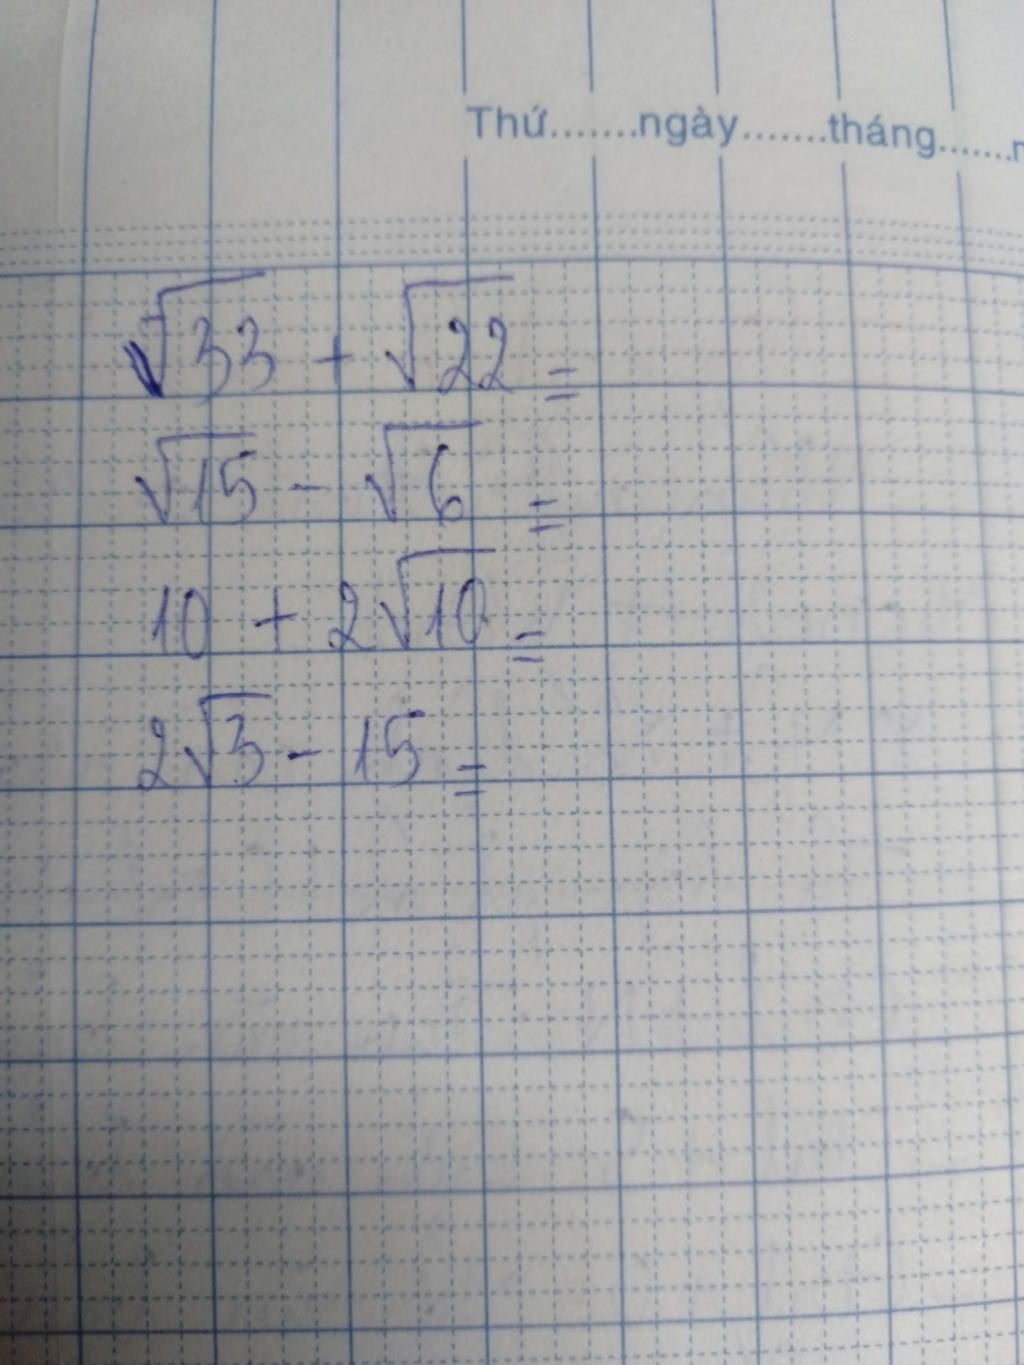 Thứ.......ngày.......tháng.......
√33 + √22 =
√15 - √6 =
10 + 2√10 =
2√3 - 15 =